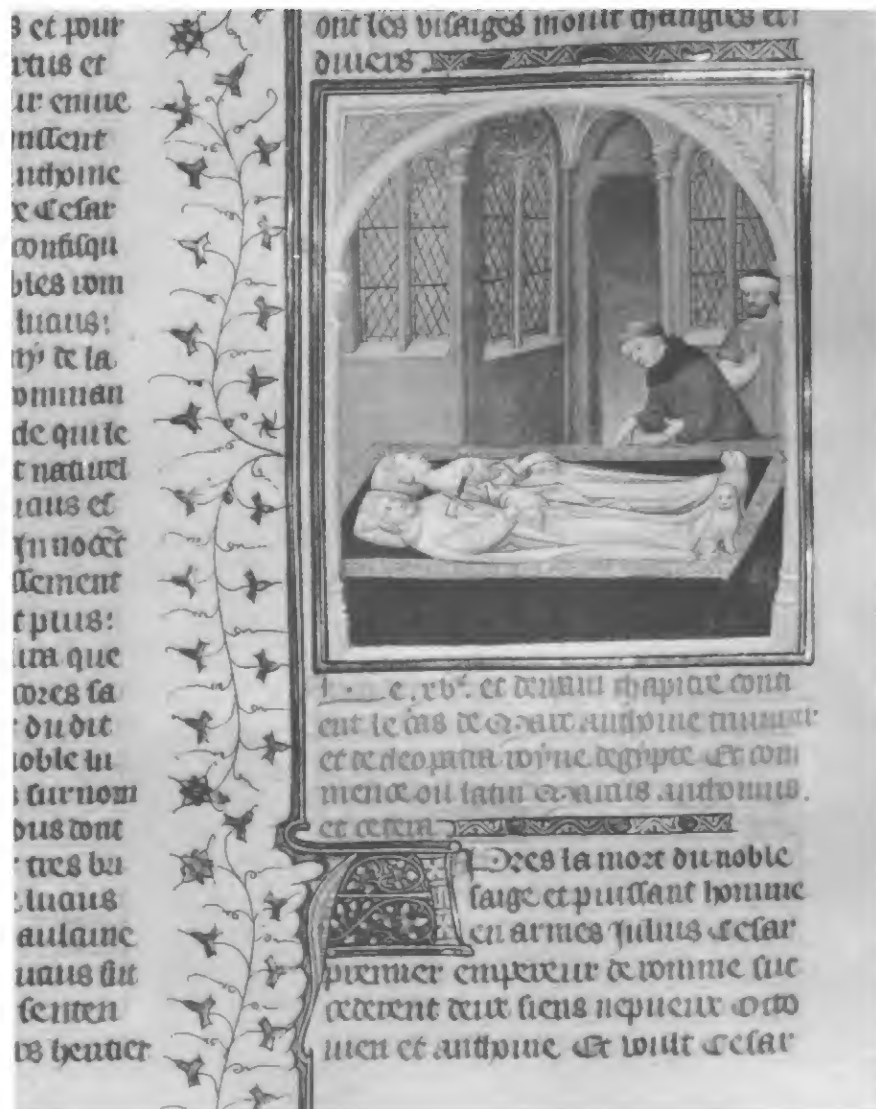 s et pour
rtus et
ur enuie
nissent
anthoine
x Cesar
confisqu
bles rom
lucius:
de la
omman
de qui le
t naturel
ucius et
Innocēt
ssement
t plus:
ura que
cores sa
r du dit
noble lu
s surnom
dus dont
r tres ba
e lucius
aulaine
ucius fu
senten
rs heritier
ont les visaiges moult changies et
diuers
.xvᵉ. et derrain chapitre conti
ent le cas de Marc anthoine triumuir
et de cleopatra royne degypte Et com
mence ou latin Marcus anthonius.
et cetera
APres la mort du noble
saige et puissant homme
en armes Julius Cesar
premier empereur de romme suc
cederent deux siens nepueux Octo
uien et anthoine Et voult Cesar